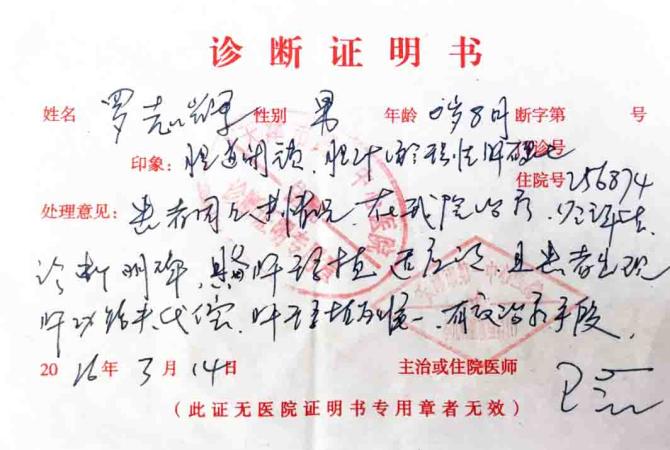 诊断证明书
姓名 罗志辉 性别 男 年龄 0岁8月 断字第 号
印象: 胆道闭锁、胆汁淤积性肝硬化 诊号
住院号256874
处理意见: 患者因上述情况,在我院治疗,
诊断明确,具备肝移植适应证,且患者出现
肝功能失代偿,肝移植为唯一有效治疗手段,
2016年3月14日 主治或住院医师
(此证无医院证明书专用章者无效)